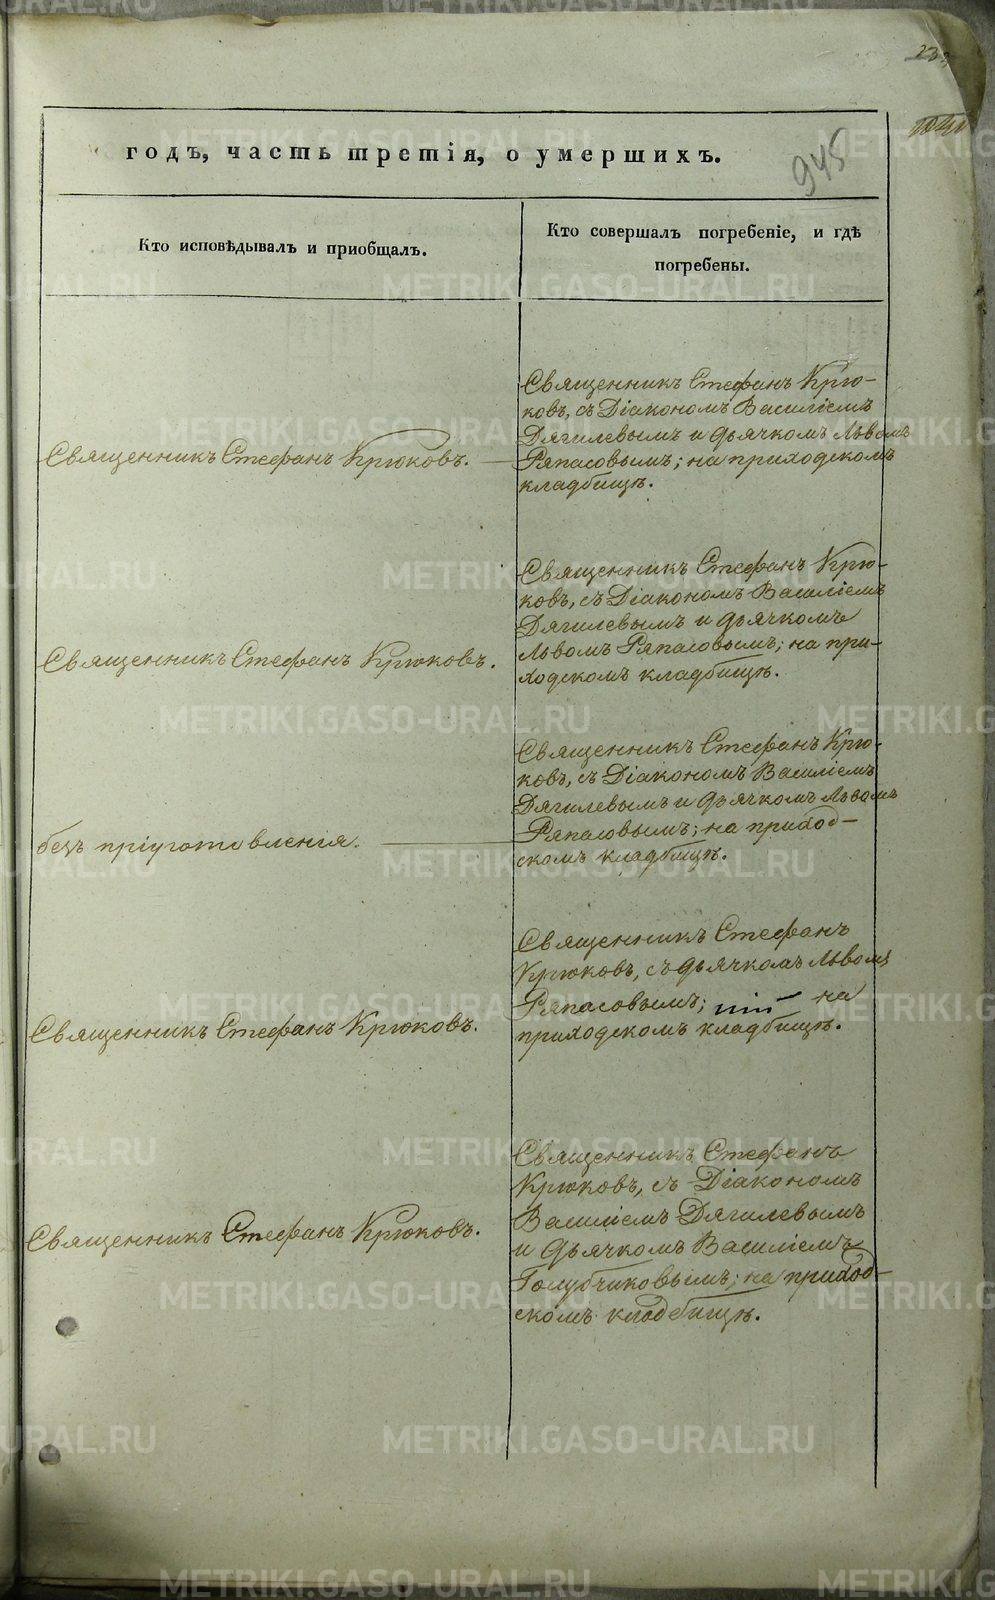 945
годъ, часть третія, о умершихъ.
Кто исповѣдывалъ и приобщалъ.
Кто совершалъ погребеніе, и гдѣ
погребены.
Священникъ Стефанъ Крюковъ.
Священникъ Стефанъ Крю-
ковъ, съ Діакономъ Василіемъ
Дягилевымъ и дьячкомъ Львомъ
Ряпасовымъ; на приходскомъ
кладбищѣ.
Священникъ Стефанъ Крюковъ.
Священникъ Стефанъ Крю-
ковъ, съ Діакономъ Василіемъ
Дягилевымъ и дьячкомъ
Львомъ Ряпасовымъ; на при-
ходскомъ кладбищѣ.
безъ пріуготовленія.
Священникъ Стефанъ Крю-
ковъ, съ Діакономъ Василіемъ
Дягилевымъ и дьячкомъ Львомъ
Ряпасовымъ; на приход-
скомъ кладбищѣ.
Священникъ Стефанъ Крюковъ.
Священникъ Стефанъ
Крюковъ, съ дьячкомъ Львомъ
Ряпасовымъ; на
приходскомъ кладбищѣ.
Священникъ Стефанъ Крюковъ.
Священникъ Стефанъ
Крюковъ, съ Діакономъ
Василіемъ Дягилевымъ
и дьячкомъ Василіемъ
Голубчиковымъ; на приход-
скомъ кладбищѣ.
METRIKI.GASO-URAL.RU